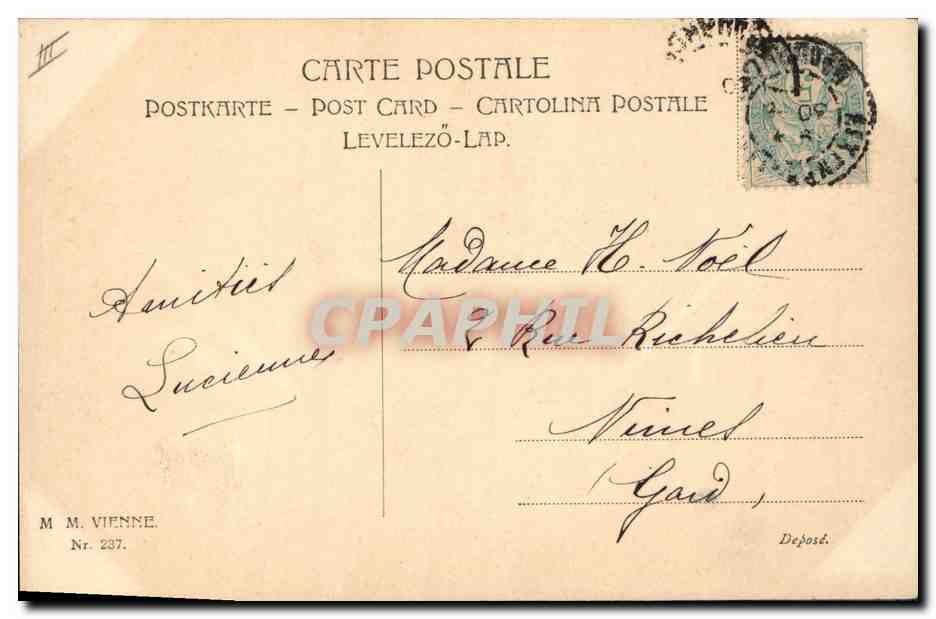 III
CARTE POSTALE
POSTKARTE – POST CARD – CARTOLINA POSTALE
LEVELEZŐ-LAP.
Madame H. Noël
2 Rue Richelieu
Nimes
Gard,
Amitiés
Lucienne
CPAPHIL
M M. VIENNE.
Nr. 237.
Deposé.